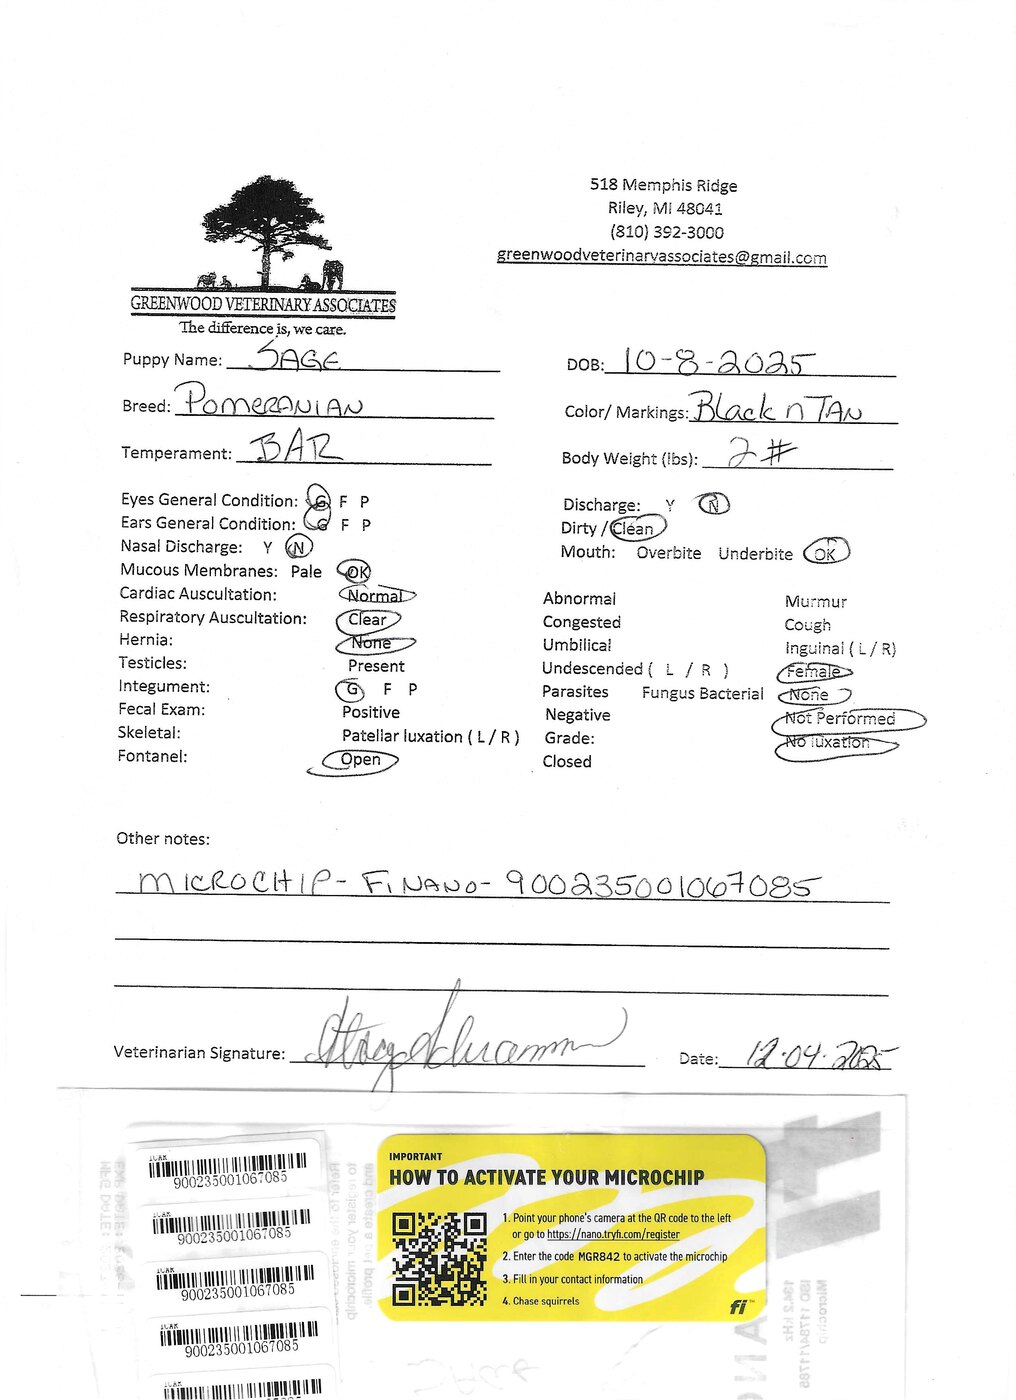 518 Memphis Ridge
Riley, MI 48041
(810) 392-3000
greenwoodveterinaryassociates@gmail.com
GREENWOOD VETERINARY ASSOCIATES
The difference is, we care.
Puppy Name: SAGE DOB: 10-8-2025
Breed: POMERANIAN Color/ Markings: Black n TAN
Temperament: BAR Body Weight (lbs): 2#
Eyes General Condition: G F P Discharge: Y N
Ears General Condition: G F P Dirty / Clean
Nasal Discharge: Y N Mouth: Overbite Underbite OK
Mucous Membranes: Pale OK
Cardiac Auscultation: Normal Abnormal Murmur
Respiratory Auscultation: Clear Congested Cough
Hernia: None Umbilical Inguinal ( L / R)
Testicles: Present Undescended ( L / R ) Female
Integument: G F P Parasites Fungus Bacterial None
Fecal Exam: Positive Negative Not Performed
Skeletal: Patellar luxation ( L / R ) Grade: No luxation
Fontanel: Open Closed
Other notes:
MICROCHIP- FI NANO- 900235001067085
Veterinarian Signature: Date: 12.04.2025
ICAR
900235001067085
ICAR
900235001067085
ICAR
900235001067085
ICAR
900235001067085
ICAR
IMPORTANT
HOW TO ACTIVATE YOUR MICROCHIP
1. Point your phone's camera at the QR code to the left
or go to https://nano.tryfi.com/register
2. Enter the code MGR842 to activate the microchip
3. Fill in your contact information
4. Chase squirrels
fi™
Microchip
ISO 11784/11785
134.2 kHz